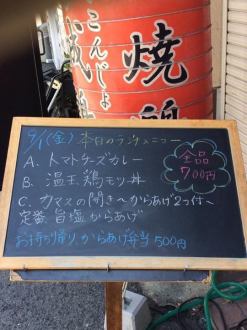 焼鶏
こんじょ
9/1(金) 本日のランチメニュー
A. トマトチーズカレー
B. 温玉鶏モリ丼
C. カマスの開き〜からあげ2つ付〜
定番 旨塩からあげ
お持ち帰り からあげ弁当 500円
全品
700円